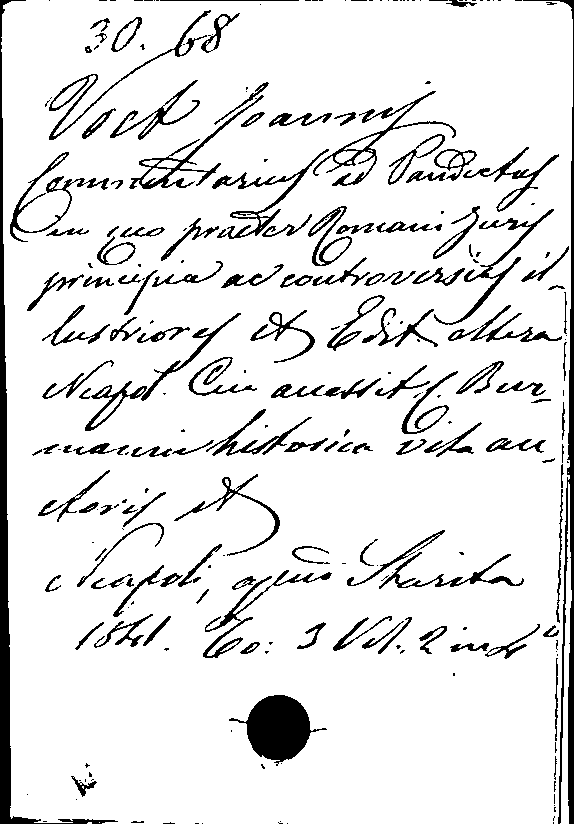 30. 68
Voet Joannis
Commentarius ad Pandectas
in quo praeter Romani Juris
principia ac controversias il-
lustriores et Edit. altera
Neapol. Cui accessit C. Bur-
manni historica vita au-
ctoris et
Neapoli, apud Starita
1841. To: 3 Vol. 2 in 4°